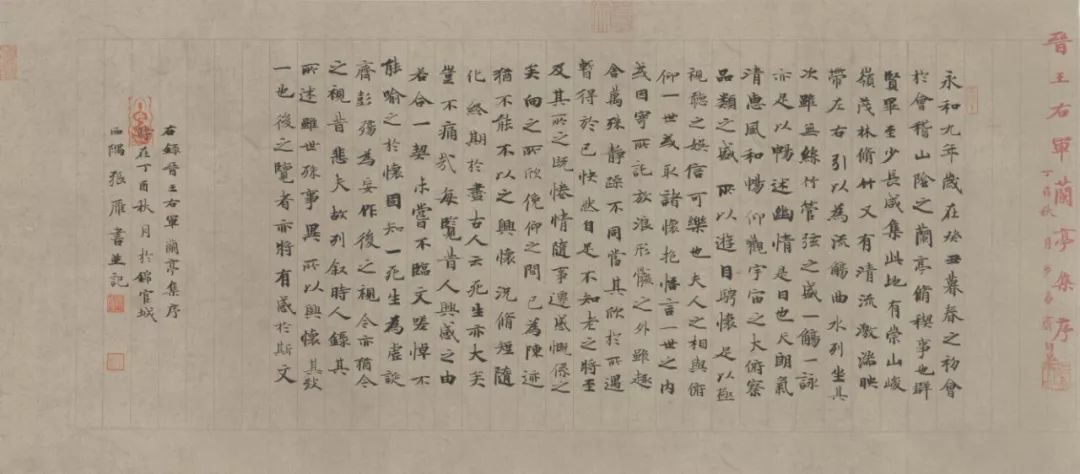 晉王右軍蘭亭集序
丁酉秋月
永和九年歲在癸丑暮春之初會
於會稽山陰之蘭亭脩稧事也群
賢畢至少長咸集此地有崇山峻
嶺茂林脩竹又有清流激湍映
帶左右引以為流觴曲水列坐其
次雖無絲竹管弦之盛一觴一詠
亦足以暢述幽情是日也天朗氣
清惠風和暢仰觀宇宙之大俯察
品類之盛所以遊目騁懷足以極
視聽之娛信可樂也夫人之相與俯
仰一世或取諸懷抱悟言一世之內
或因寄所託放浪形骸之外雖趣
舍萬殊靜躁不同當其欣於所遇
暫得於己快然自足不知老之將至
及其所之既惓情隨事遷感慨係之
矣向之所欣俛仰之間已為陳迹
猶不能不以之興懷況脩短隨
化終期於盡古人云死生亦大矣
豈不痛哉每覽昔人興感之由
若合一契未嘗不臨文嗟悼不
能喻之於懷固知一死生為虛誕
齊彭殤為妄作後之視今亦猶今
之視昔悲夫故列敘時人錄其
所述雖世殊事異所以興懷其致
一也後之覽者亦將有感於斯文
右錄晉王右軍蘭亭集序
時在丁酉秋月於錦官城
西隅張雁書並記